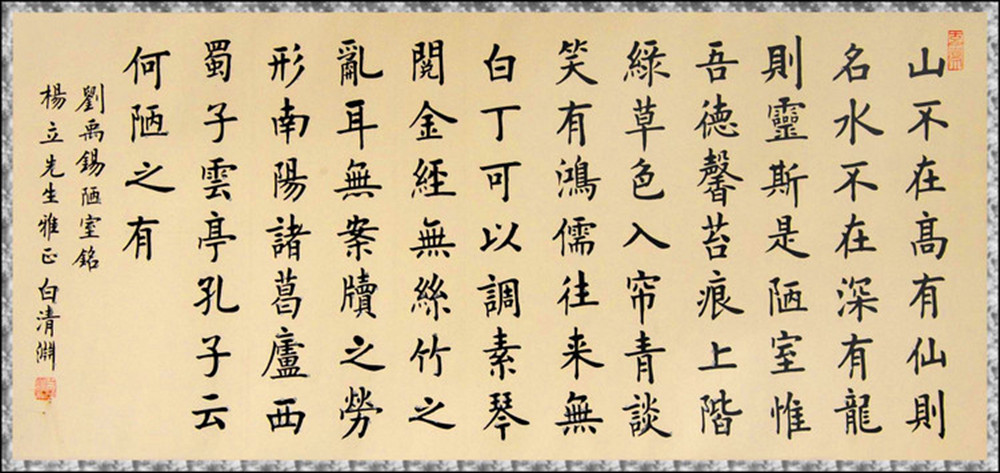 山不在高有仙則
名水不在深有龍
則靈斯是陋室惟
吾德馨苔痕上階
綠草色入帘青談
笑有鴻儒往来無
白丁可以調素琴
閱金經無絲竹之
亂耳無案牘之勞
形南陽諸葛廬西
蜀子雲亭孔子云
何陋之有
劉禹錫陋室銘
楊立先生雅正白清淵